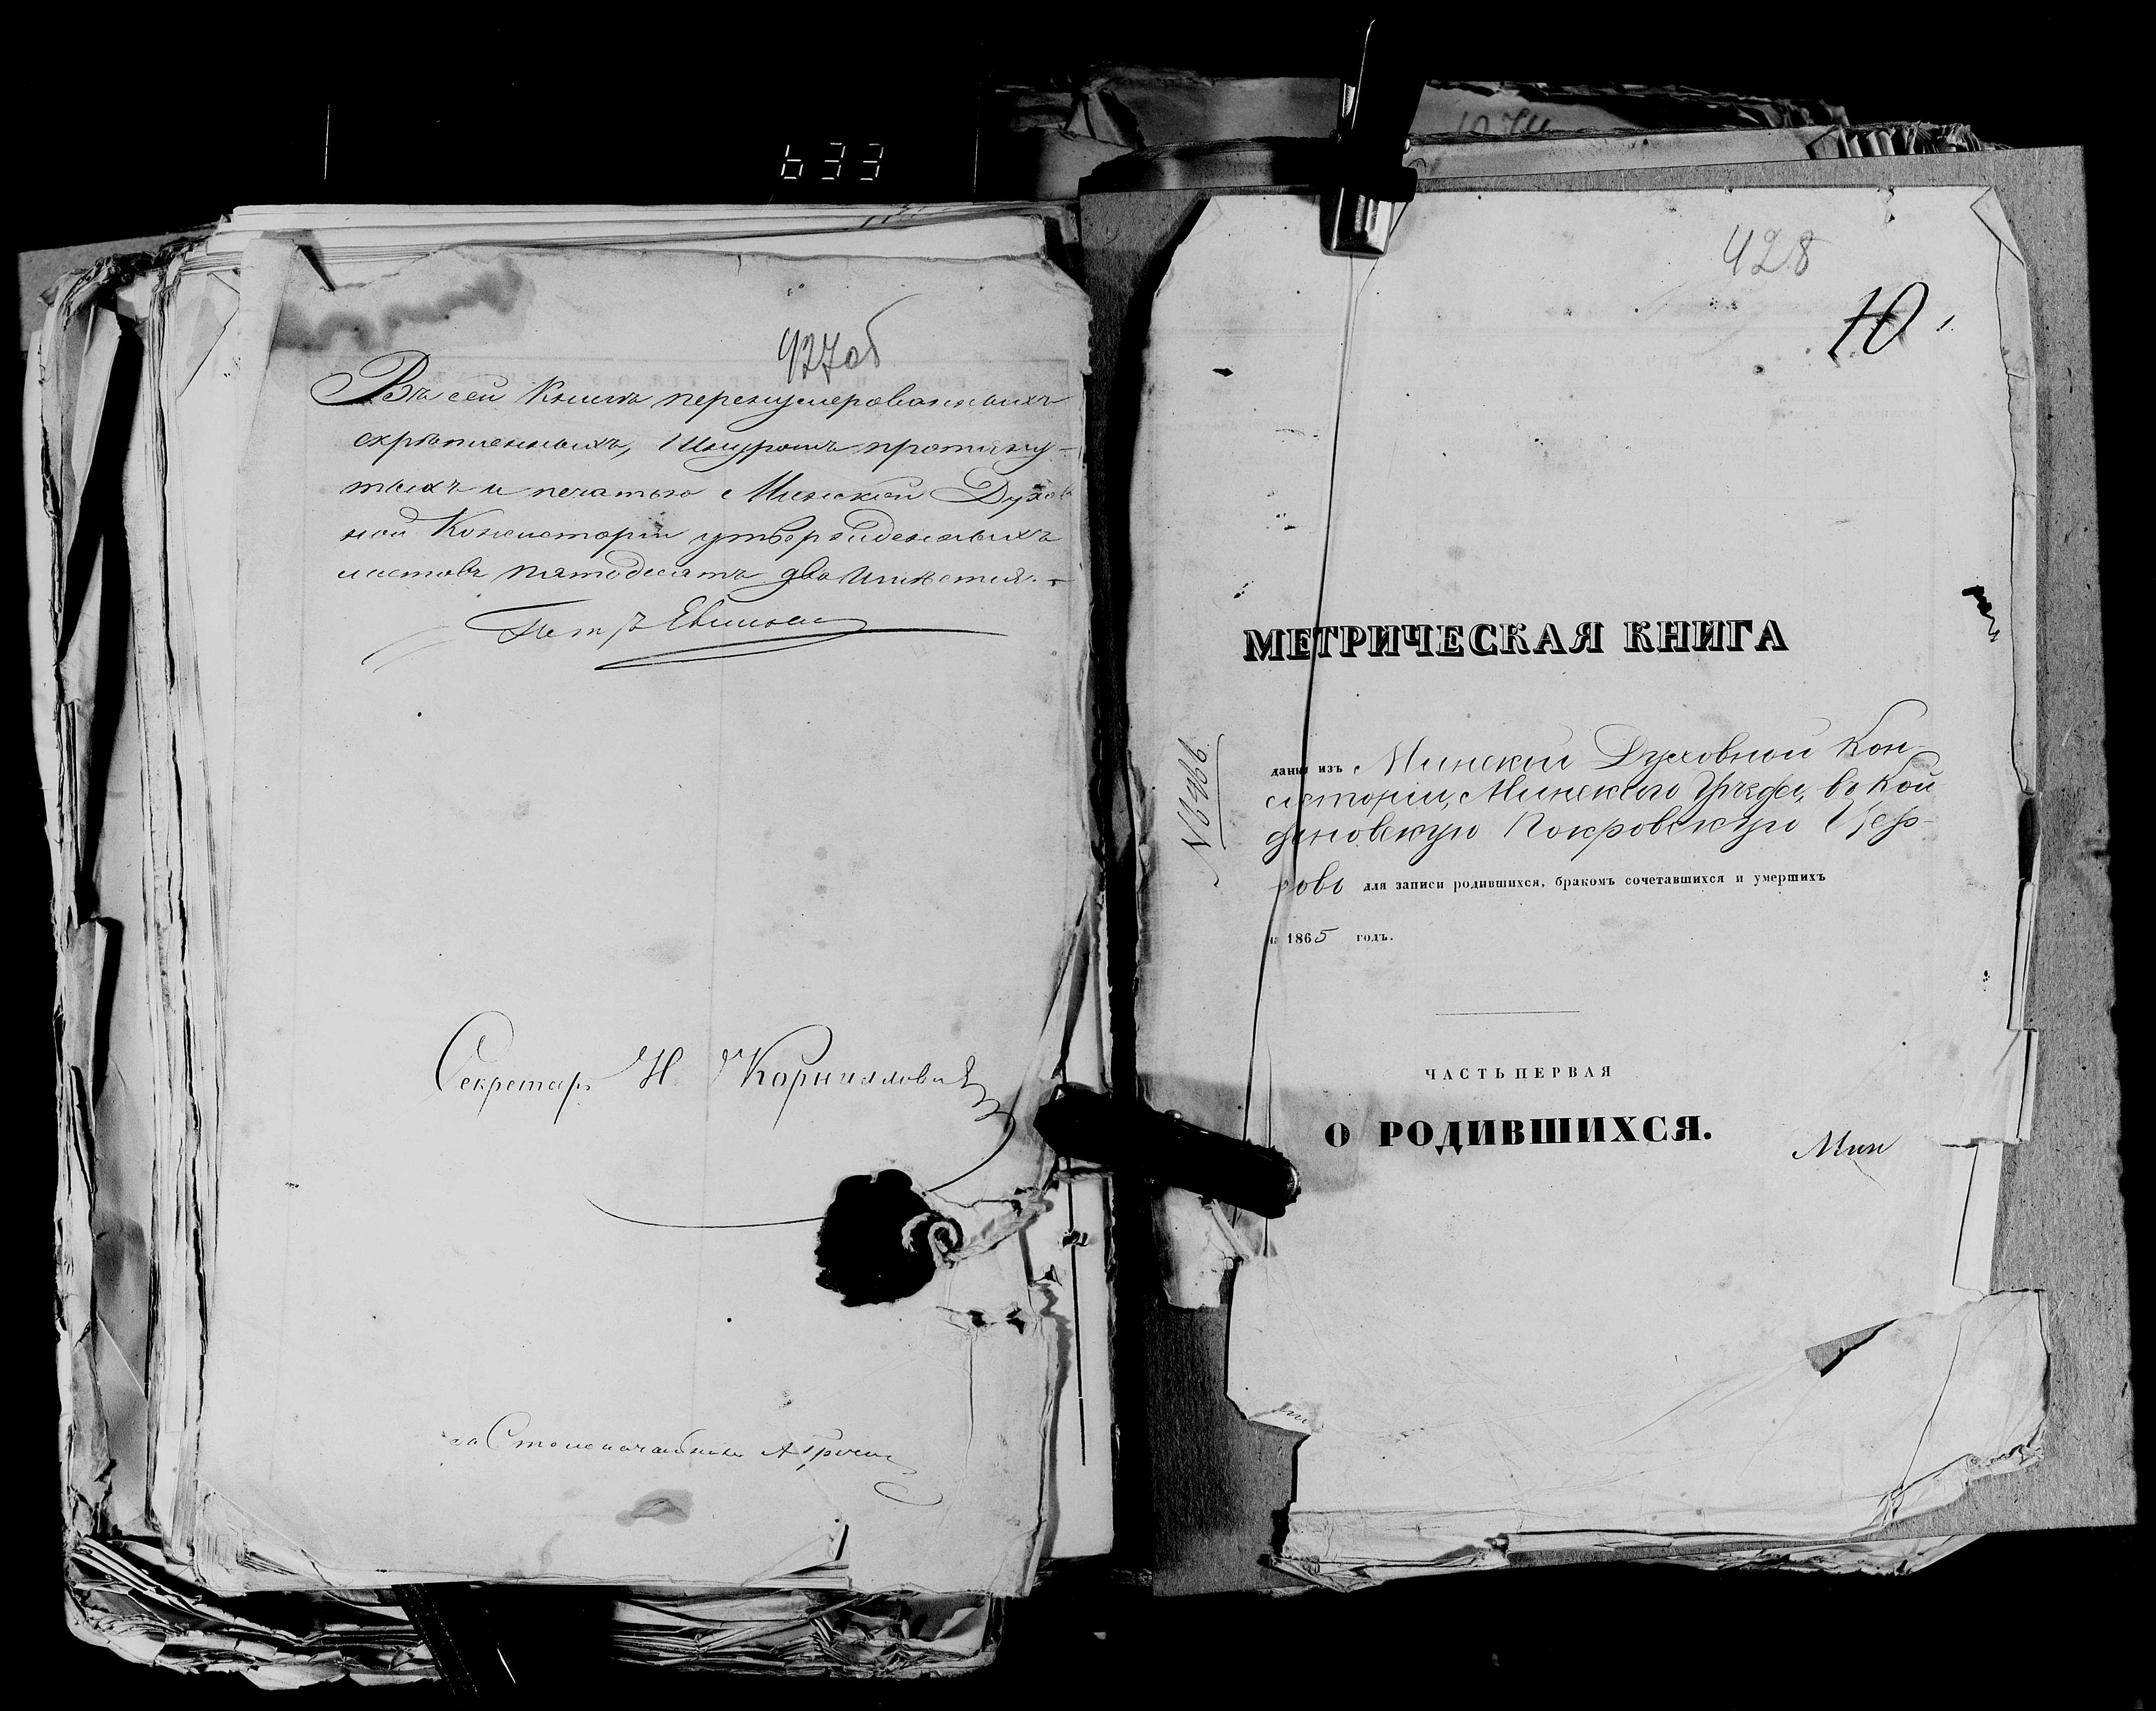 633
427об
Въ сей Книгѣ перенумерованныхъ
скрѣпленныхъ, Шнуромъ протяну-
тыхъ и печатью Минской Духов
ной Консисторіи утвержденныхъ
листовъ пятодесятъ два
Петръ
Секретарь Н Корниловичъ
за Столоначальника
428
10
МЕТРИЧЕСКАЯ КНИГА
№
даная изъ Минской Духовной Кон-
систоріи, Минскаго Уѣзда, въ Кой
дановскую Покровскую Цер-
ковь для записи родившихся, бракомъ сочетавшихся и умершихъ
на 1865 годъ.
ЧАСТЬ ПЕРВАЯ
О РОДИВШИХСЯ.
Мин